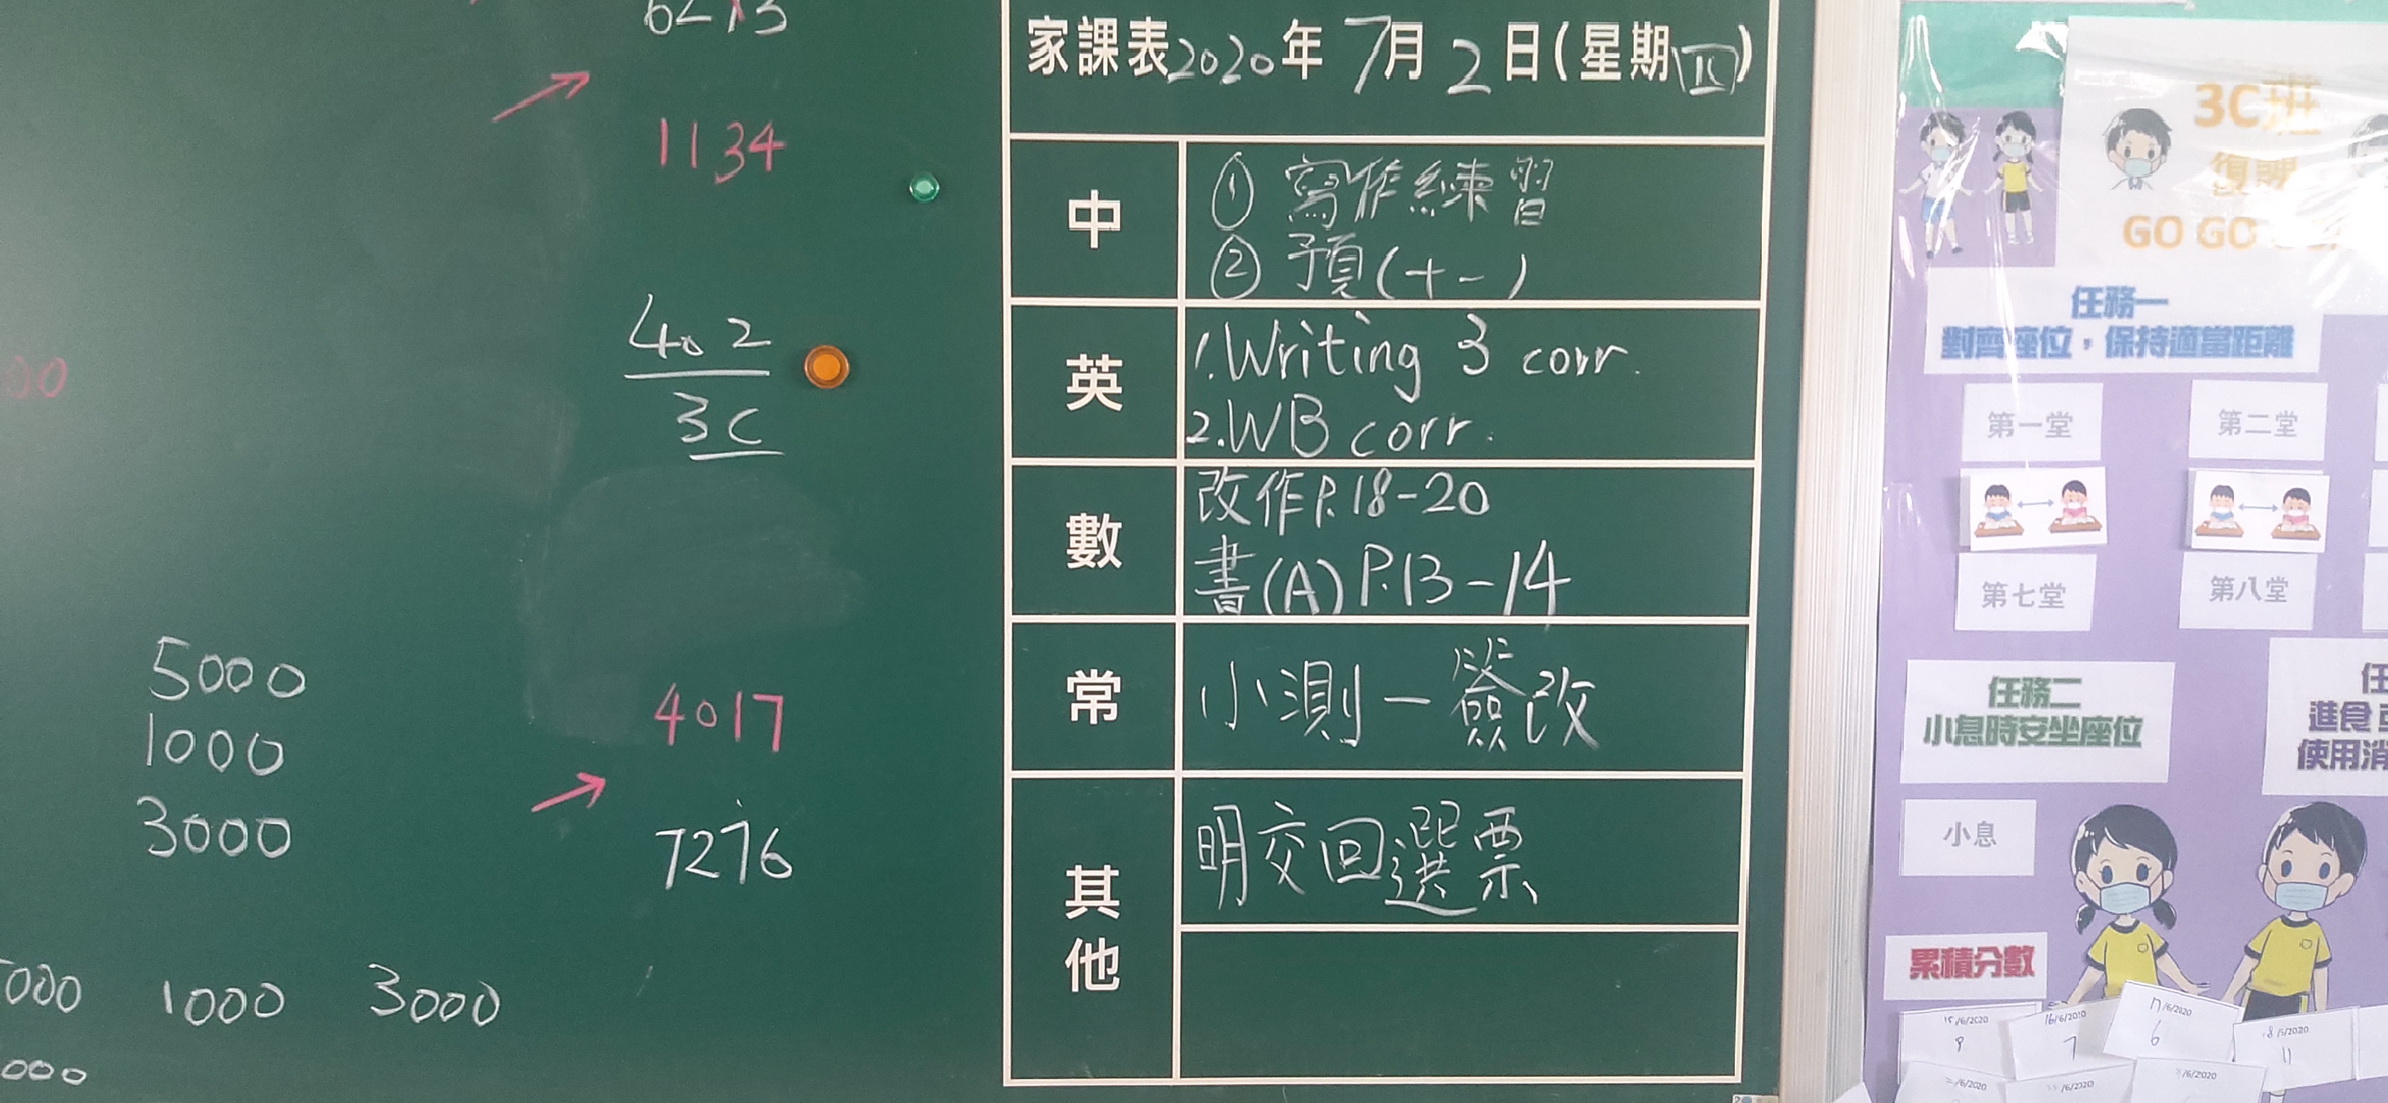 1134
402
3C
5000
1000
3000
4017
7276
1000 3000
家課表2020年7月2日(星期四)
中
① 寫作練習
② 預(十一)
英
1.Writing 3 corr.
2.WB corr.
數
改作P.18-20
書(A)P.13-14
常
小測一簽改
其他
明交回選票
3C班
GO GO
任務一
對齊座位，保持適當距離
第一堂
第二堂
第七堂
第八堂
任務二
小息時安坐座位
進食
使用消
小息
累積分數
16/6/2020
7
17/6/2020
6
11